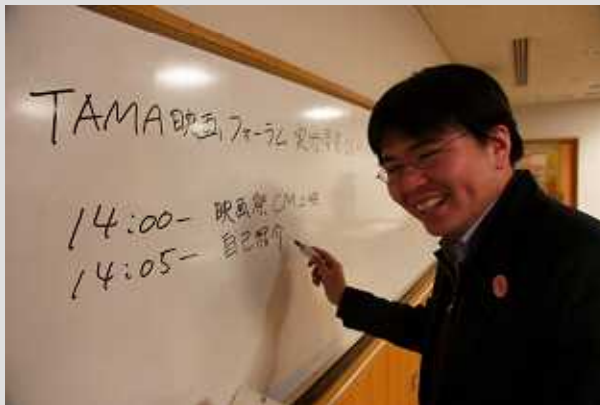 TAMA映画フォーラム実行委員会
14:00- 映画祭CM上映
14:05- 自己紹介